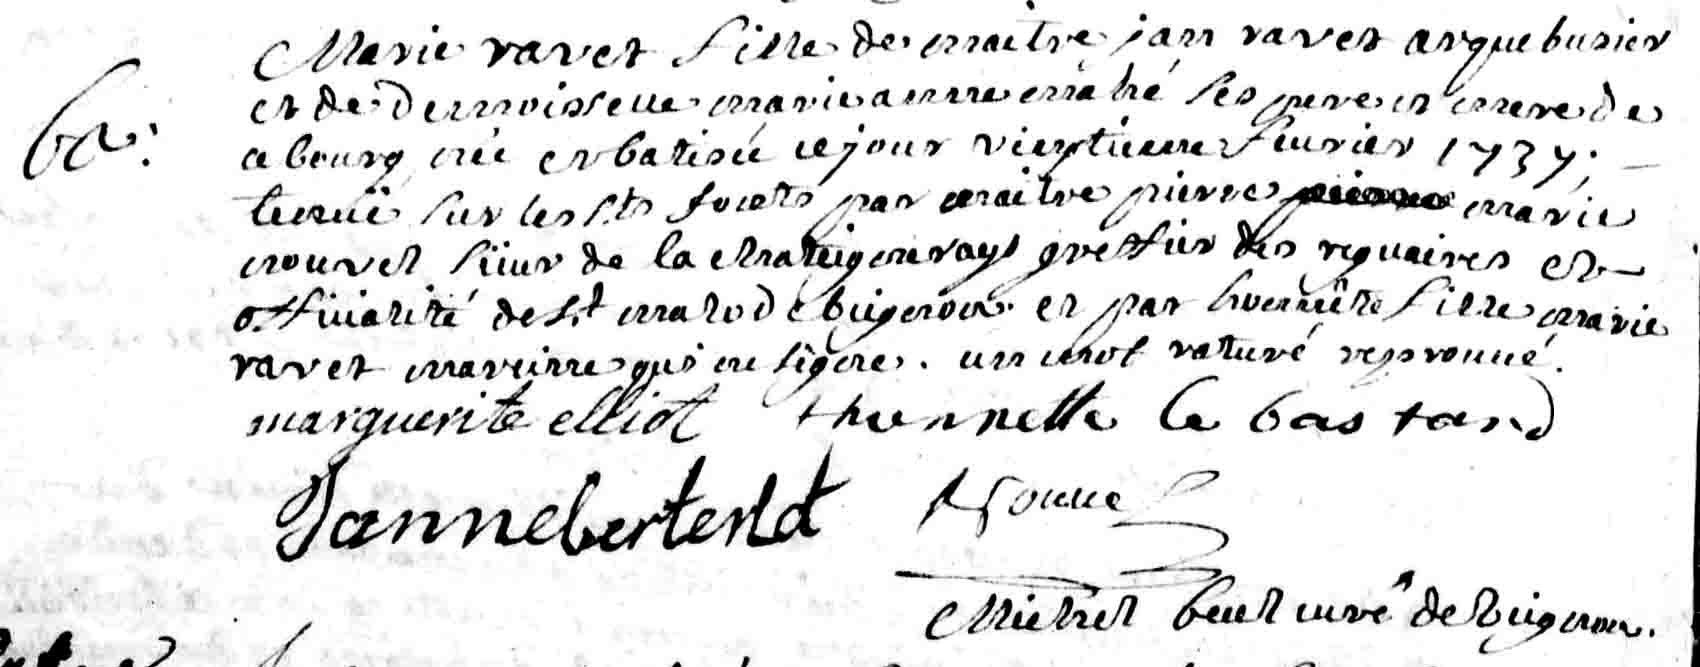 Marie ravet fille de maitre jan ravet arquebusier
ba: et de Demoisselle marie anne mahé ses pere et mere de
ce bourg née et batisée ce jour vingtieme fevrier 1737;
tenuë sur les sts fonts par maitre pierre marie
nouvel siiur de la greffier des reguaires et
officialité de st malo de beignon et par honnête fille marie
ravet mareinne qui ne signe. un mot raturé reprouué.
marguerite elliot thunnette le bastard
Janne
Nouuel
Michel curé de beignon.